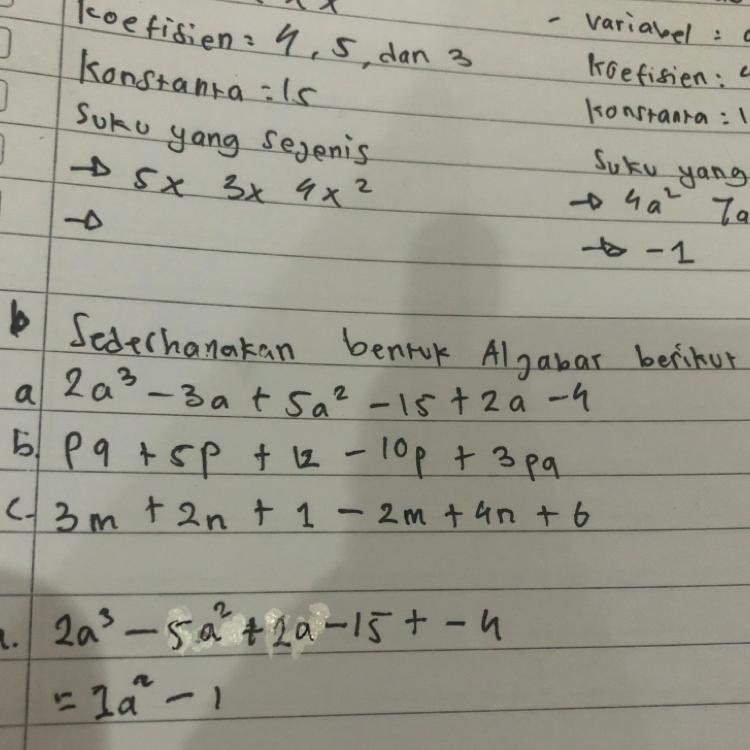 Koefisien = 4, 5, dan 3
Konstanta = 15
Suku yang sejenis
→ 5x 3x 4x²
→
- variabel :
Koefisien :
Konstanta = 1
Suku yang
→ 4a² 7a
→ -1
b Sederhanakan bentuk Algabar berikut
a 2a³ - 3a + 5a² - 15 + 2a - 4
b. pq + 5p + 12 - 10p + 3pq
c. 3m + 2n + 1 - 2m + 4n + 6
2a³ - 5a² + 2a - 15 + - 4
= 7a² - 1